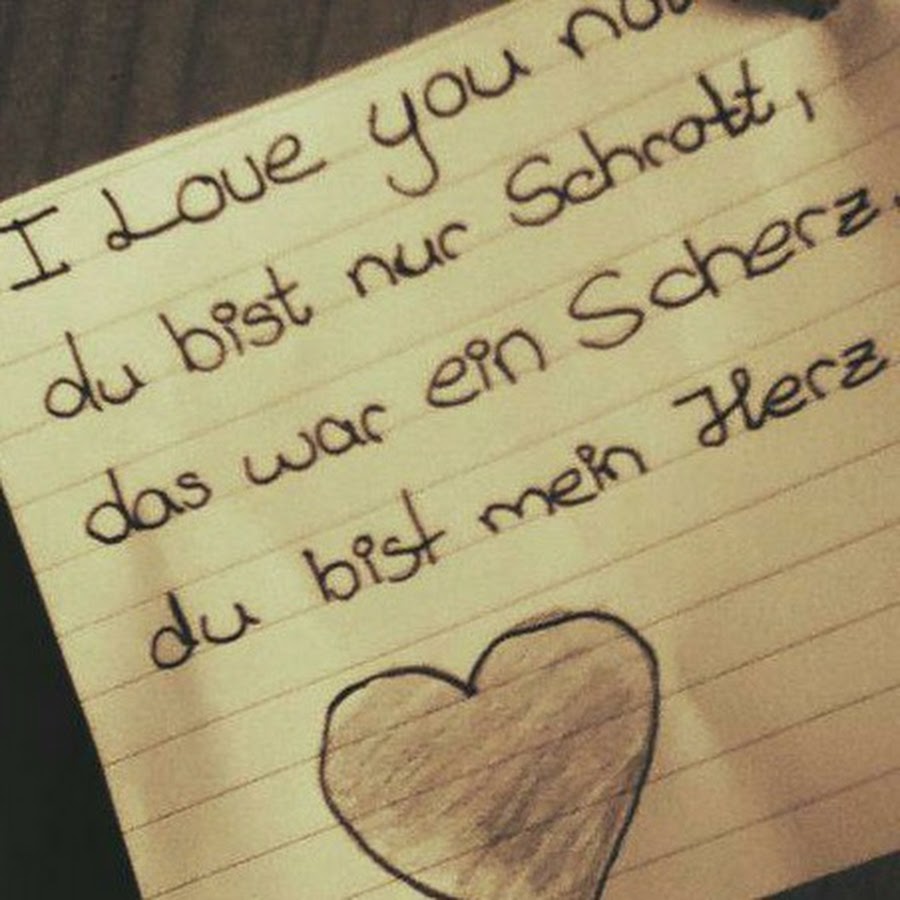 I Love you
du bist nur Schrott,
das war ein Scherz,
du bist mein Herz